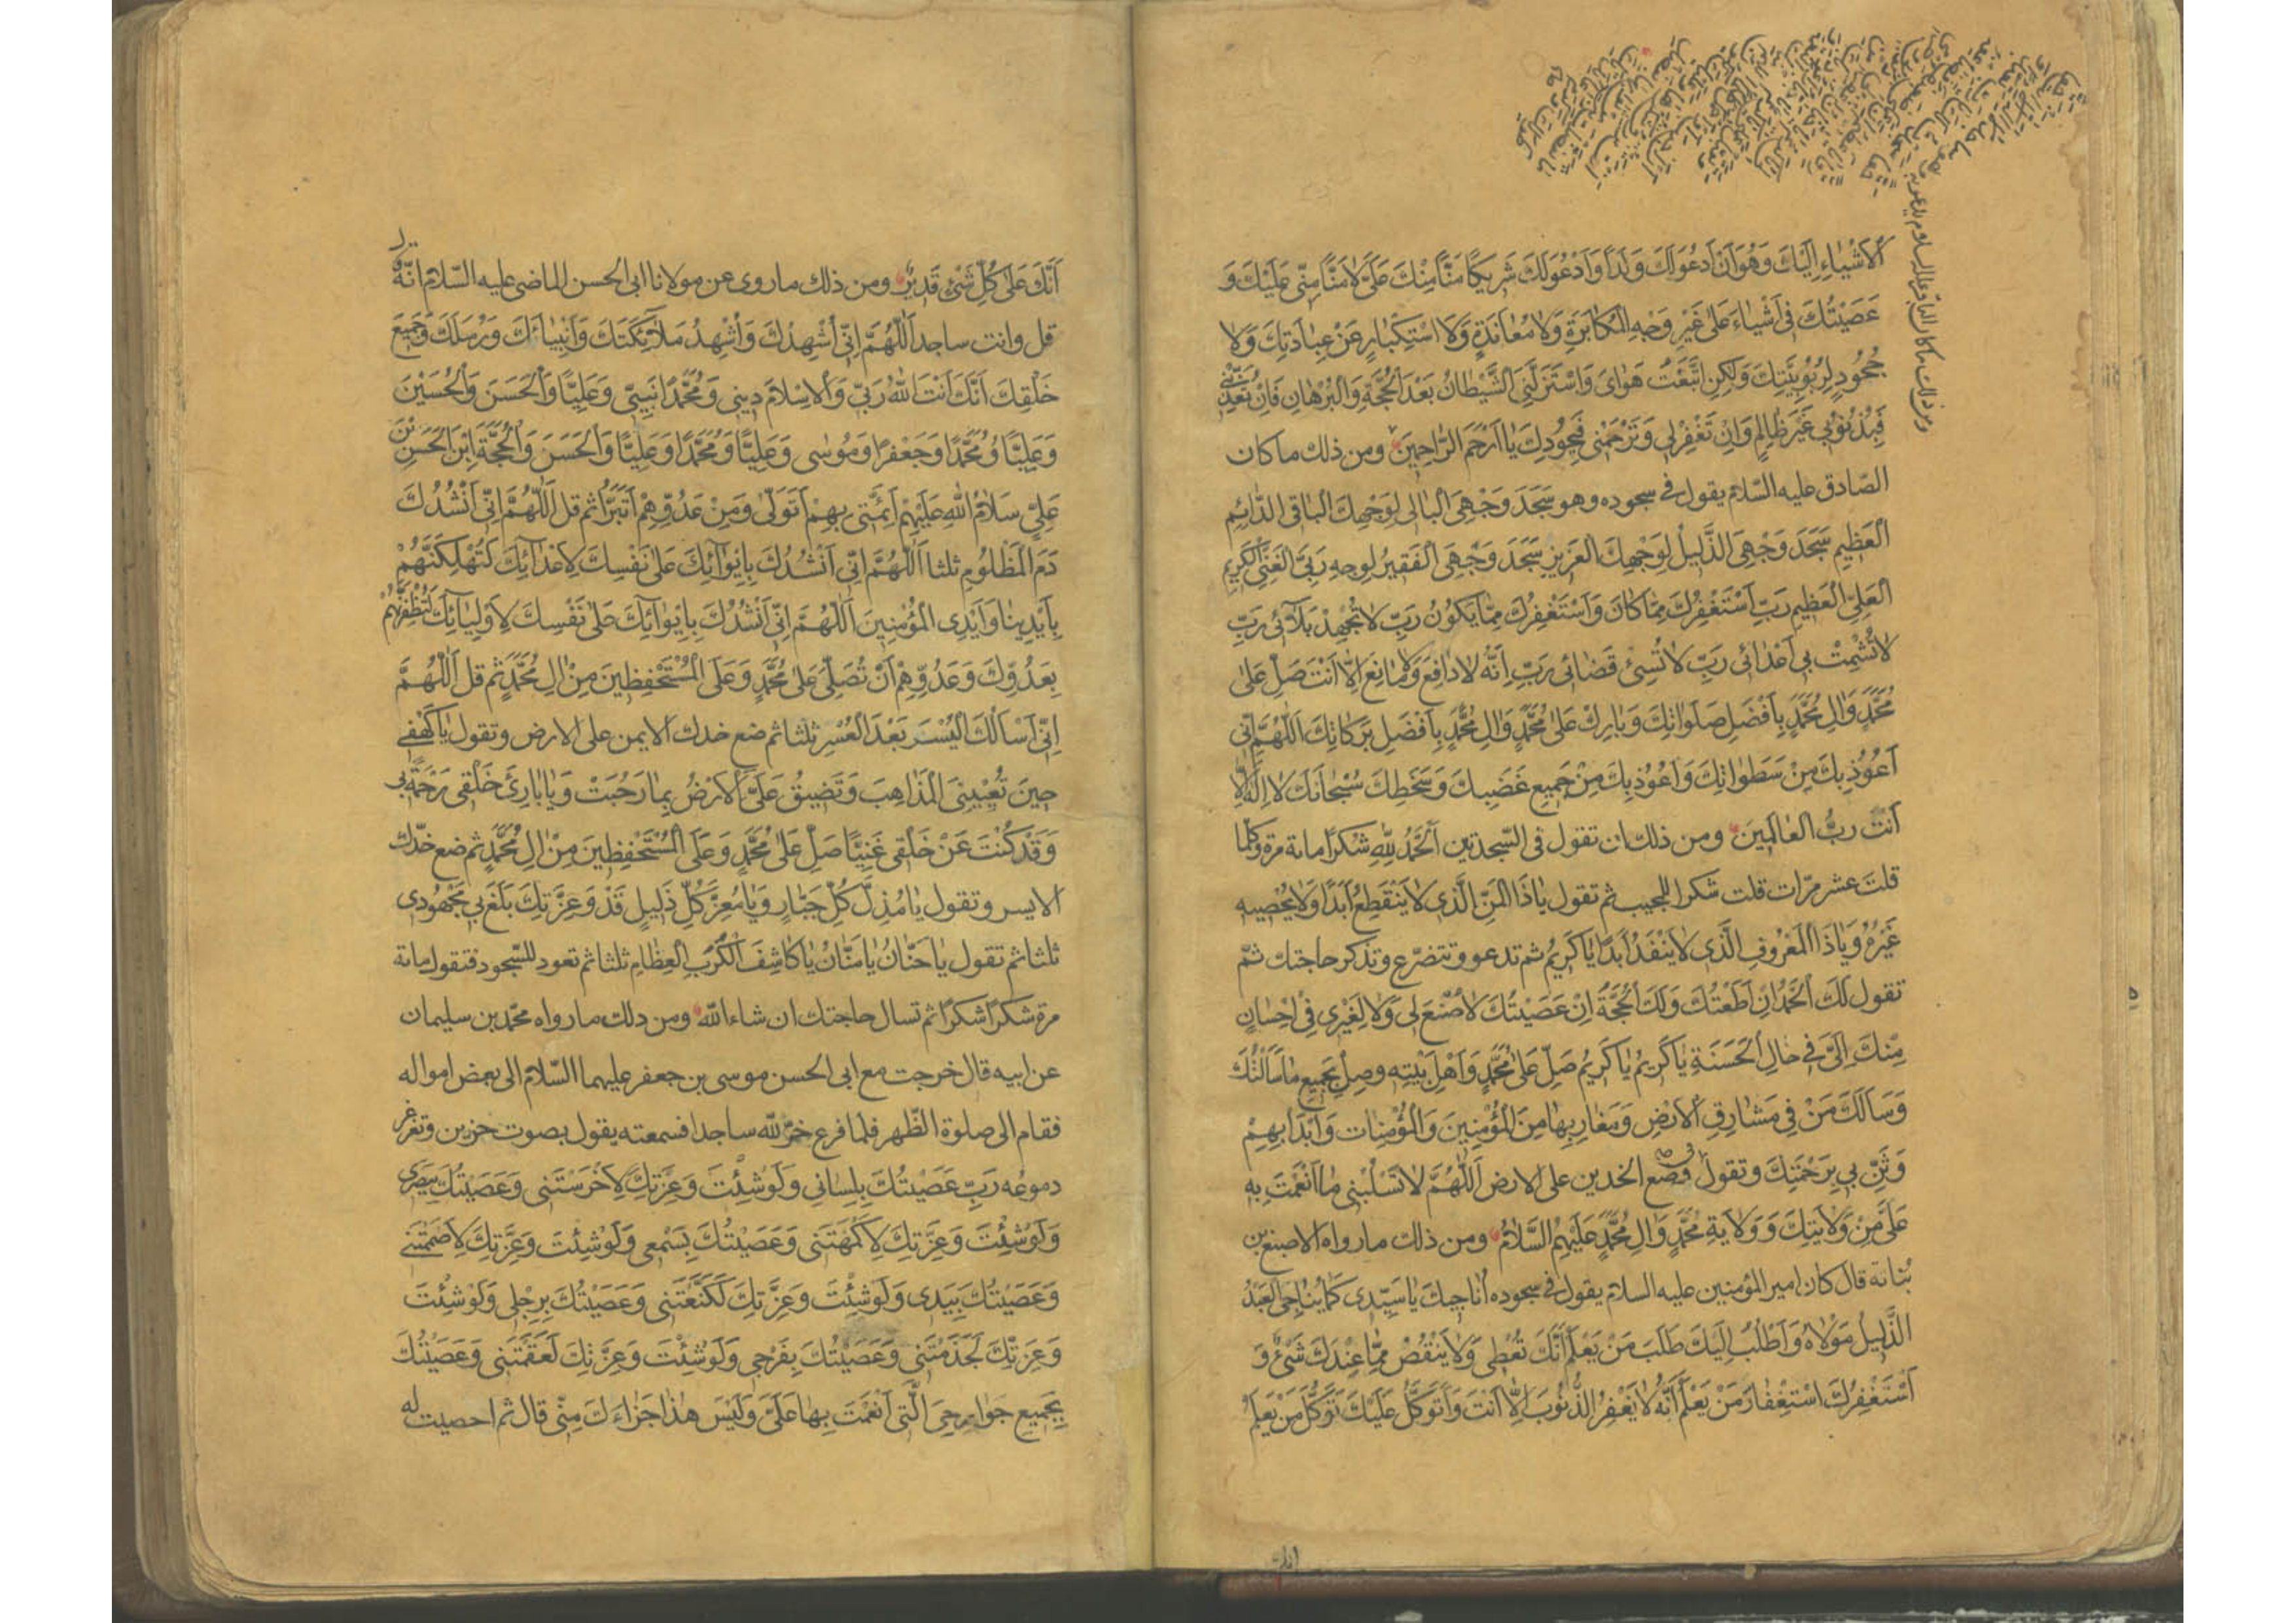 الْاَشْيٰاءِ اِلَيْكَ وَهُوَ اَنْ اَدْعُوَ لَكَ وَلَدًا وَاَدْعُوَ لَكَ شَرِيكًا مَنًّا مِنْكَ عَلَيَّ لَا مَنًّا مِنّي عَلَيْكَ وَ
عَصَيْتُكَ فى اَشْيٰاءَ عَلىٰ غَيْرِ وَجْهِ الْمُكٰابَرَةِ وَلَا مُعٰانَدَةٍ وَلَا اسْتِكْبٰارٍ عَنْ عِبٰادَتِكَ وَلَا
جُحُودٍ لِرُبُوبِيَّتِكَ وَلٰكِنِ اتَّبَعْتُ هَوٰاىَ وَاسْتَزَلَّنِىَ الشَّيْطٰانُ بَعْدَ الْحُجَّةِ وَالْبُرْهٰانِ فَاِنْ تُعَذِّبْنى
فَبِذُنُوبي غَيْرَ ظٰالِمٍ وَاِنْ تَغْفِرْ لي وَتَرْحَمْنى فَبِجُودِكَ يٰا اَرْحَمَ الرّٰاحِمِينَ ومن ذلك ما كان
الصّادق عليه السّلام يقول فى سجوده وهو سَجَدَ وَجْهِىَ الْبٰالى لِوَجْهِكَ الْبٰاقى الدّٰائِمِ
الْعَظِيمِ سَجَدَ وَجْهِىَ الذَّلِيلُ لِوَجْهِكَ الْعَزِيزِ سَجَدَ وَجْهِىَ الْفَقِيرُ لِوَجْهِ رَبِّىَ الْغَنِيِّ الْكَرِيمِ
الْعَلِيِّ الْعَظِيمِ رَبِّ اَسْتَغْفِرُكَ مِمّٰا كٰانَ وَاَسْتَغْفِرُكَ مِمّٰا يَكُونُ رَبِّ لَا تُجْهِدْ بَلٰٓائى رَبِّ
لَا تُشْمِتْ بي اَعْدٰائى رَبِّ لَا تُسِئْ قَضٰائى رَبِّ اِنَّهُ لَا دٰافِعَ وَلَا مٰانِعَ اِلّٰا اَنْتَ صَلِّ عَلىٰ
مُحَمَّدٍ وَاٰلِ مُحَمَّدٍ بِاَفْضَلِ صَلَوٰاتِكَ وَبٰارِكْ عَلىٰ مُحَمَّدٍ وَاٰلِ مُحَمَّدٍ بِاَفْضَلِ بَرَكٰاتِكَ اَللّٰهُمَّ اِنّى
اَعُوذُ بِكَ مِنْ سَطَوٰاتِكَ وَاَعُوذُ بِكَ مِنْ جَمِيعِ غَضَبِكَ وَسَخَطِكَ سُبْحٰانَكَ لَا اِلٰهَ اِلّٰا
اَنْتَ رَبُّ الْعٰالَمِينَ ومن ذلك ان تقول فى السّجدتين اَلْحَمْدُ لِلّٰهِ شُكْرًا مائة مرة وكلما
قلت عشر مرّات قلت شكرا للمجيب ثم تقول يٰا ذَا الْمَنِّ الَّذى لَا يَنْقَطِعُ اَبَدًا وَلَا يُحْصِيهِ
غَيْرُهُ وَيٰا ذَا الْمَعْرُوفِ الَّذى لَا يَنْفَدُ اَبَدًا يٰا كَرِيمُ ثم تدعو وتتضرّع وتذكر حاجتك ثمّ
تقول لَكَ الْحَمْدُ اِنْ اَطَعْتُكَ وَلَكَ الْحُجَّةُ اِنْ عَصَيْتُكَ لَا صُنْعَ لى وَلَا لِغَيْرى فِى اِحْسٰانٍ
مِنْكَ اِلَيَّ فى حٰالِ الْحَسَنَةِ يٰا كَرِيمُ يٰا كَرِيمُ صَلِّ عَلىٰ مُحَمَّدٍ وَاَهْلِ بَيْتِهِ وصِلْ بِجَمِيعِ مٰا سَاَلْتُكَ
وَسَاَلَكَ مَنْ فِى مَشٰارِقِ الْاَرْضِ وَمَغٰارِبِهٰا مِنَ الْمُؤْمِنِينَ وَالْمُؤْمِنٰاتِ وَابْدَاْ بِهِمْ
وَثَنِّ بي بِرَحْمَتِكَ وتقول فى وضع الخدين على الارض اَللّٰهُمَّ لَا تَسْلُبْنى مٰا اَنْعَمْتَ بِهِ
عَلَيَّ مِنْ وَلَايَتِكَ وَوَلَايَةِ مُحَمَّدٍ وَاٰلِ مُحَمَّدٍ عَلَيْهِمُ السَّلٰامُ ومن ذلك ما رواه الاصبغ بن
نباتة قال كان امير المؤمنين عليه السلام يقول فى سجوده اُنٰاجِيكَ يٰا سَيِّدى كَمٰا يُنٰاجِى الْعَبْدُ
الذَّلِيلُ مَوْلَاهُ وَاَطْلُبُ اِلَيْكَ طَلَبَ مَنْ يَعْلَمُ اَنَّكَ تُعْطى وَلَا يَنْقُصُ مِمّٰا عِنْدَكَ شَيْءٌ وَ
اَسْتَغْفِرُكَ اسْتِغْفٰارَ مَنْ يَعْلَمُ اَنَّهُ لَا يَغْفِرُ الذُّنُوبَ اِلّٰا اَنْتَ وَاَتَوَكَّلُ عَلَيْكَ تَوَكُّلَ مَنْ يَعْلَمُ
اَنَّكَ عَلىٰ كُلِّ شَيْءٍ قَدِيرٌ ومن ذلك ما روى عن مولانا ابى الحسن الماضى عليه السّلام انّه
قل وانت ساجد اَللّٰهُمَّ اِنّى اُشْهِدُكَ وَاُشْهِدُ مَلٰٓائِكَتَكَ وَاَنْبِيٰائَكَ وَرُسُلَكَ وَجَمِيعَ
خَلْقِكَ اَنَّكَ اَنْتَ اللّٰهُ رَبّي وَالْاِسْلٰامَ دِينى وَمُحَمَّدًا نَبِيّي وَعَلِيًّا وَالْحَسَنَ وَالْحُسَيْنَ
وَعَلِيًّا وَمُحَمَّدًا وَجَعْفَرًا وَمُوسٰى وَعَلِيًّا وَمُحَمَّدًا وَعَلِيًّا وَالْحَسَنَ وَالْحُجَّةَ ابْنَ الْحَسَنِ بْنِ
عَلِيٍّ سَلٰامُ اللّٰهِ عَلَيْهِمْ اَئِمَّتى بِهِمْ اَتَوَلّىٰ وَمِنْ عَدُوِّهِمْ اَتَبَرَّاُ ثم قل اَللّٰهُمَّ اِنّى اَنْشُدُكَ
دَمَ الْمَظْلُومِ ثلثا اَللّٰهُمَّ اِنّى اَنْشُدُكَ بِاِيوٰائِكَ عَلىٰ نَفْسِكَ لِاَعْدٰائِكَ لَتُهْلِكَنَّهُمْ
بِاَيْدِينٰا وَاَيْدِى الْمُؤْمِنِينَ اَللّٰهُمَّ اِنّى اَنْشُدُكَ بِاِيوٰائِكَ عَلىٰ نَفْسِكَ لِاَوْلِيٰائِكَ لَتُظْفِرَنَّهُمْ
بِعَدُوِّكَ وَعَدُوِّهِمْ اَنْ تُصَلِّىَ عَلىٰ مُحَمَّدٍ وَعَلَى الْمُسْتَحْفِظِينَ مِنْ اٰلِ مُحَمَّدٍ ثم قل اَللّٰهُمَّ
اِنّى اَسْاَلُكَ الْيُسْرَ بَعْدَ الْعُسْرِ ثلثا ثم ضع خدك الايمن على الارض وتقول يٰا كَهْفى
حِينَ تُعْيِينِى الْمَذٰاهِبُ وَتَضِيقُ عَلَيَّ الْاَرْضُ بِمٰا رَحُبَتْ وَيٰا بٰارِئَ خَلْقى رَحْمَةً بي
وَقَدْ كُنْتَ عَنْ خَلْقى غَنِيًّا صَلِّ عَلىٰ مُحَمَّدٍ وَعَلَى الْمُسْتَحْفِظِينَ مِنْ اٰلِ مُحَمَّدٍ ثم ضع خدّك
الايسر وتقول يٰا مُذِلَّ كُلِّ جَبّٰارٍ وَيٰا مُعِزَّ كُلِّ ذَلِيلٍ قَدْ وَعِزَّتِكَ بَلَغَ بي مَجْهُودى
ثلثا ثم تقول يٰا حَنّٰانُ يٰا مَنّٰانُ يٰا كٰاشِفَ الْكُرَبِ الْعِظٰامِ ثلثا ثم تعود للسّجود فتقول مائة
مرة شكراً شكراً ثم تسال حاجتك ان شاء اللّه ومن ذلك ما رواه محمّد بن سليمان
عن ابيه قال خرجت مع ابى الحسن موسى بن جعفر عليهما السّلام الى بعض امواله
فقام الى صلوة الظّهر فلما فرغ خرّ للّه ساجدا فسمعته يقول بصوت حزين وتغرغر
دموعه رَبِّ عَصَيْتُكَ بِلِسٰانى وَلَوْ شِئْتَ وَعِزَّتِكَ لَاَخْرَسْتَنى وَعَصَيْتُكَ بِبَصَرى
وَلَوْ شِئْتَ وَعِزَّتِكَ لَاَكْمَهْتَنى وَعَصَيْتُكَ بِسَمْعى وَلَوْ شِئْتَ وَعِزَّتِكَ لَاَصْمَمْتَنى
وَعَصَيْتُكَ بِيَدى وَلَوْ شِئْتَ وَعِزَّتِكَ لَكَنَّعْتَنى وَعَصَيْتُكَ بِرِجْلى وَلَوْ شِئْتَ
وَعِزَّتِكَ لَجَذَمْتَنى وَعَصَيْتُكَ بِفَرْجى وَلَوْ شِئْتَ وَعِزَّتِكَ لَعَقَمْتَنى وَعَصَيْتُكَ
بِجَمِيعِ جَوٰارِحِىَ الَّتى اَنْعَمْتَ بِهٰا عَلَيَّ وَلَيْسَ هٰذٰا جَزٰاءَكَ مِنّى قال ثم احصيت له